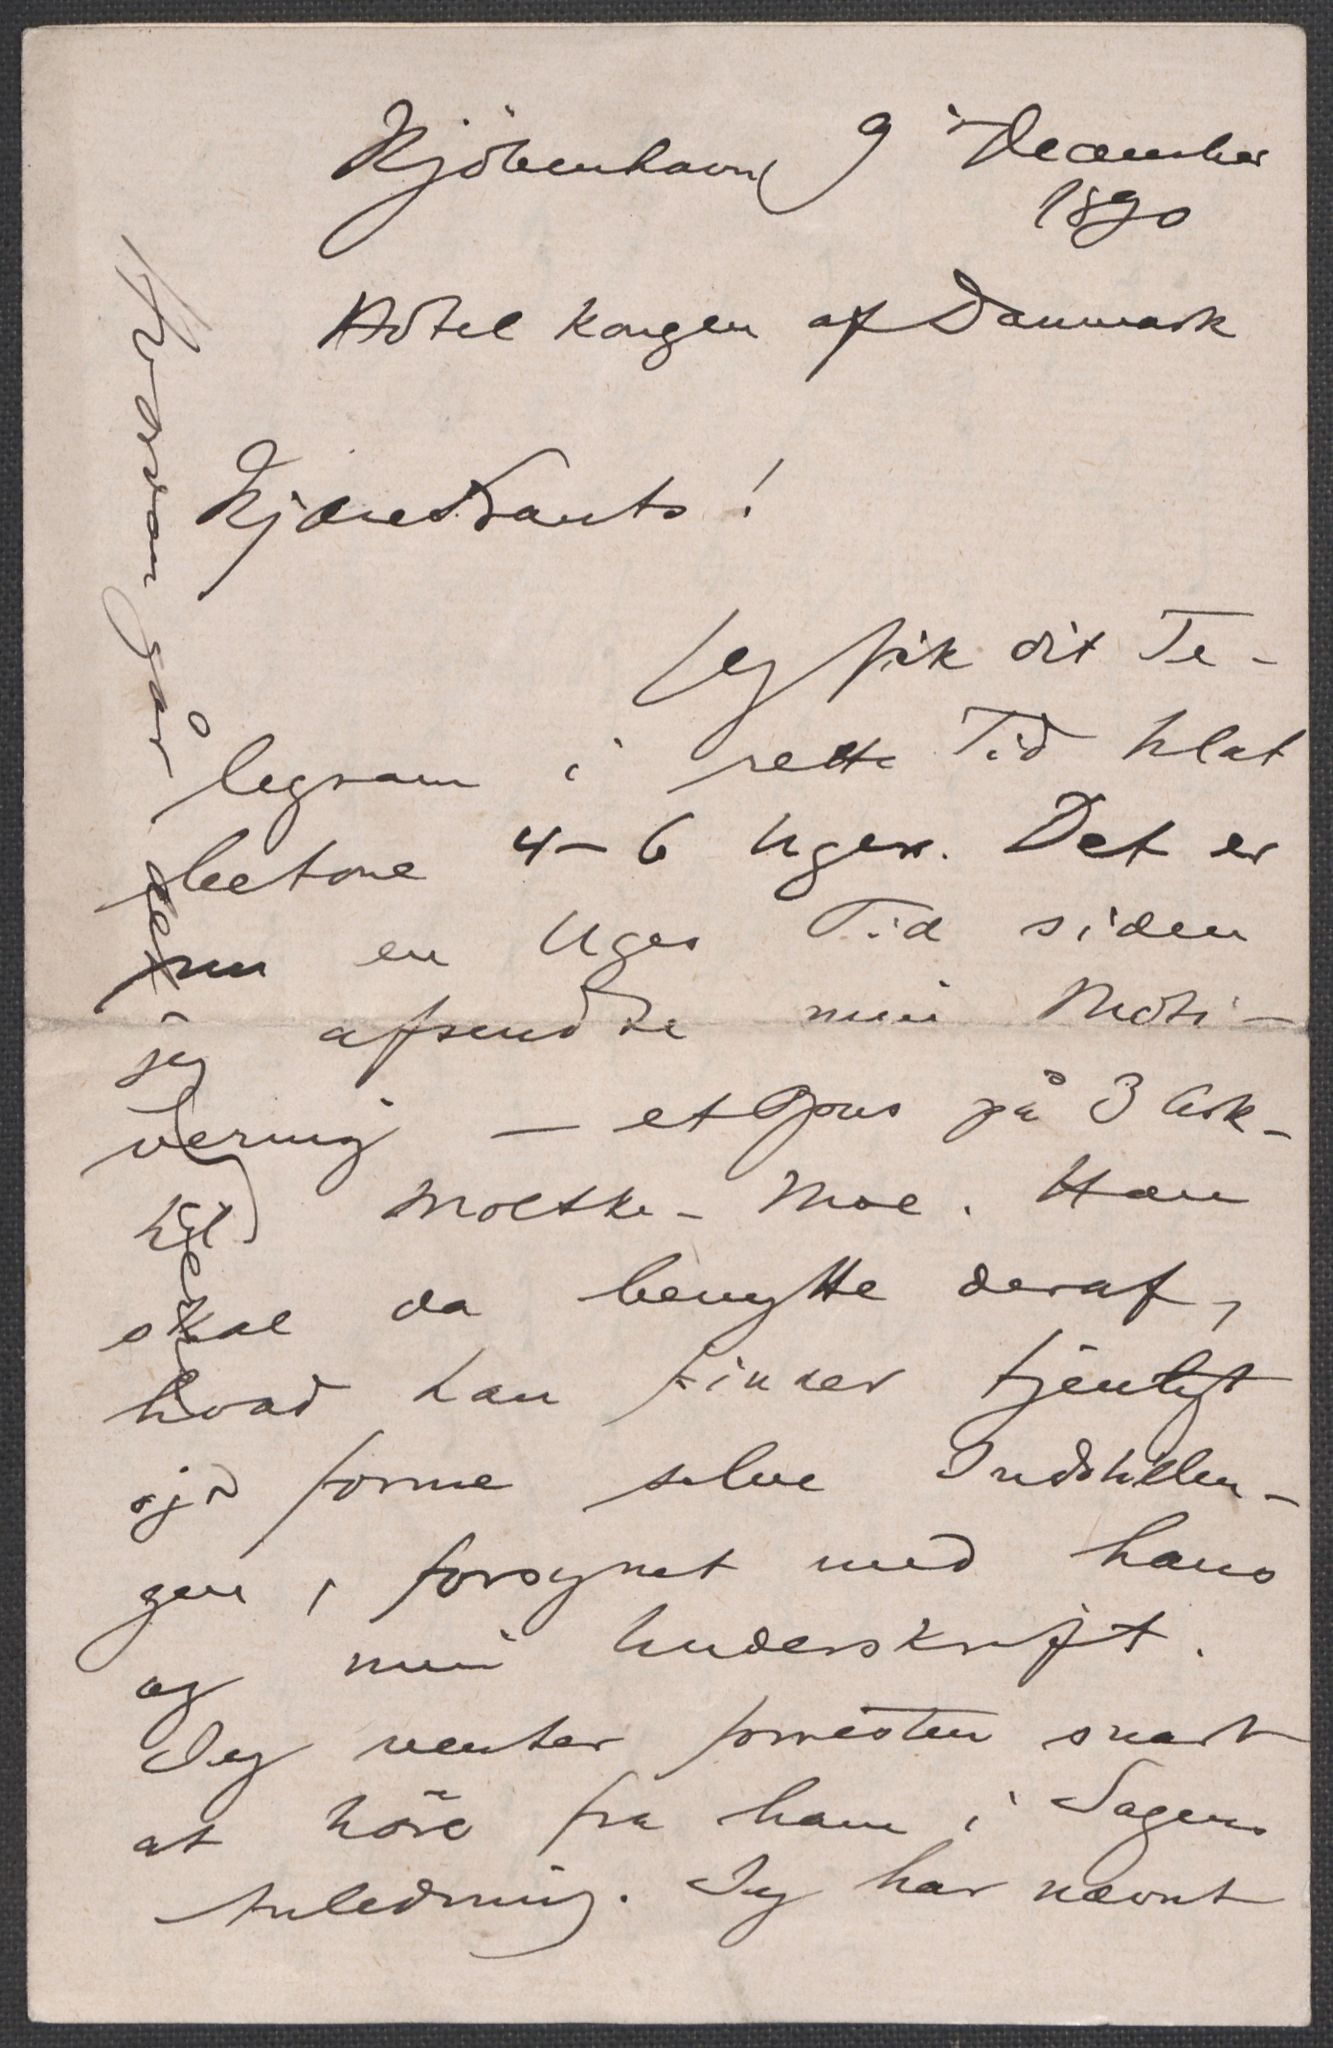 Kjöbenhavn 9 December
1890
Hôtel Kongen af Danmark
Kjære Frants!
Jeg fik dit Te-
legram i rette Tid
4-6 Uger. Det er
nu en Uges Tid siden
jeg afsendte min Moti-
vering – et Opus på 3 Ark –
til Moltke-Moe. Han
skal da benytte deraf,
hvad han finder tjenligt
og forme selve Indstillin-
gen, forsynet med hans
og min Underskrift.
Jeg venter forresten snart
at höre fra ham i Sagens
Anledning. Jeg har nævnt
Hvordan går det